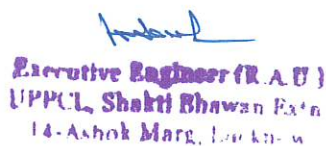 Executive Engineer (R.A.U)
UPPCL, Shakti Bhawan Extn
14-Ashok Marg, Lucknow